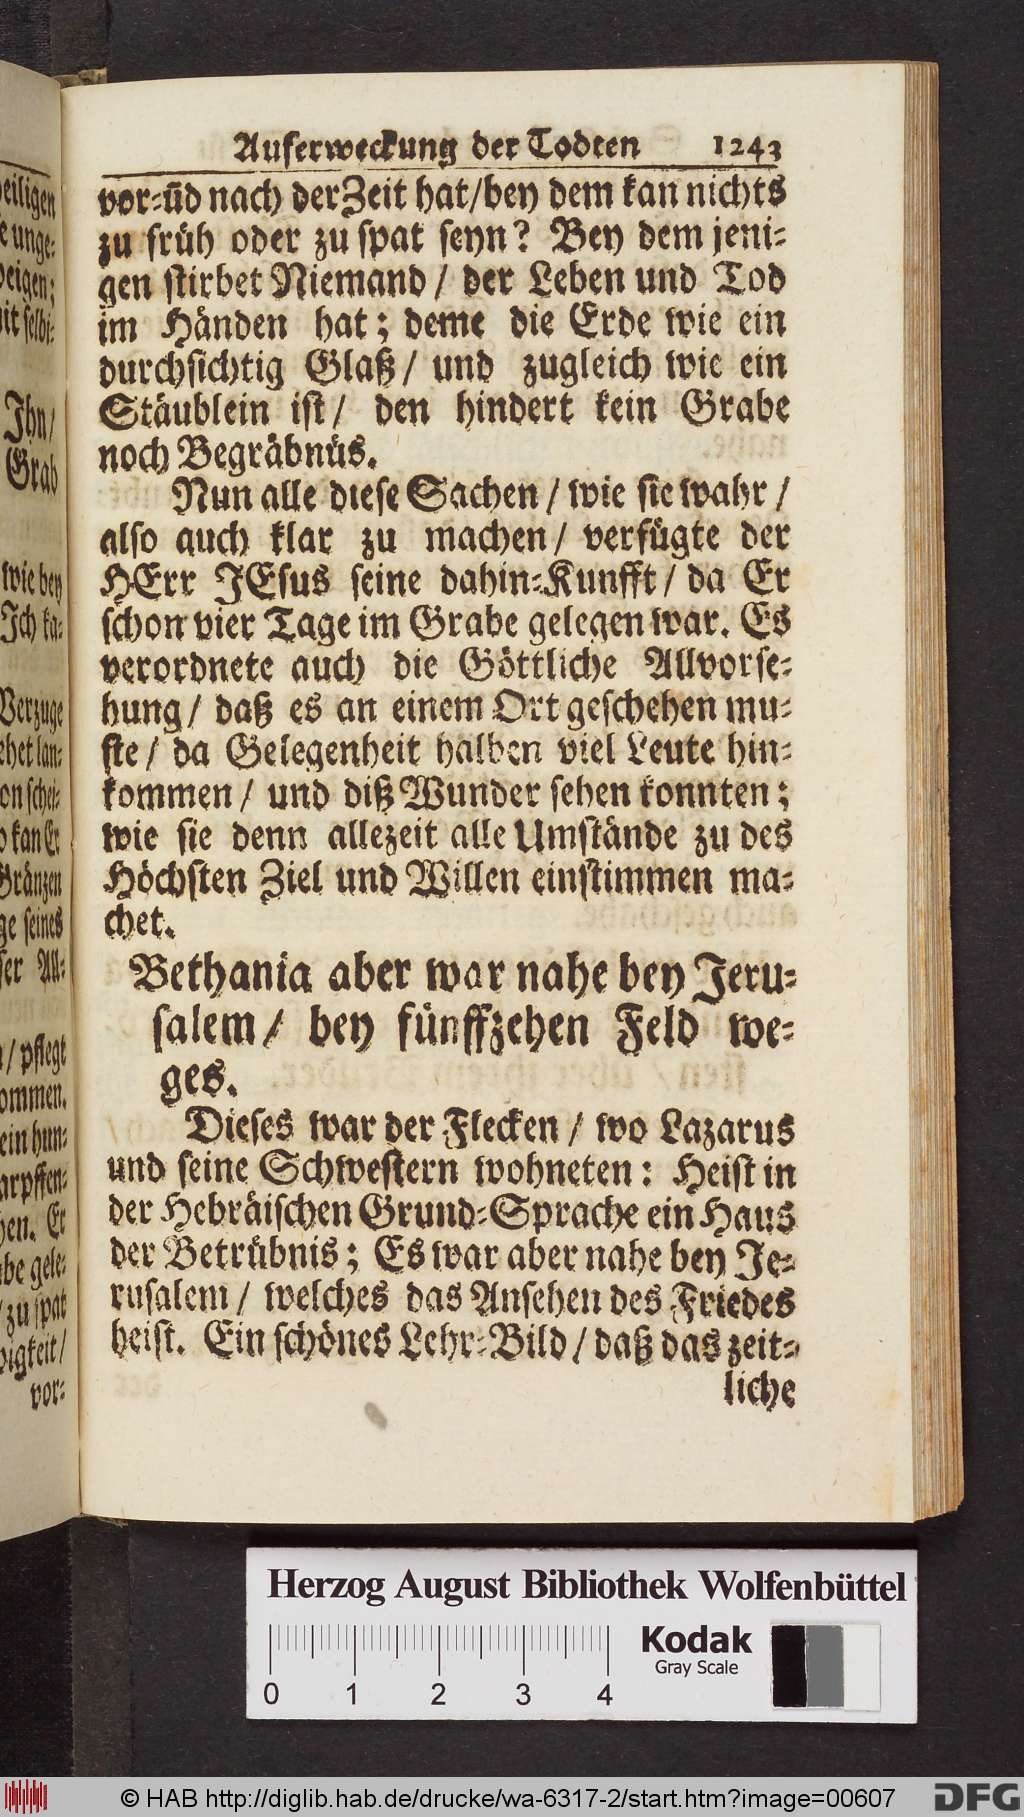 Auferweckung der Todten 1243
vor-uñd nach der Zeit hat/bey dem kan nichts
zu früh oder zu spat seyn? Bey dem jeni-
gen stirbet Niemand / der Leben und Tod
im Händen hat; deme die Erde wie ein
durchsichtig Glaß / und zugleich wie ein
Stäublein ist / den hindert kein Grabe
noch Begräbnüs.
Nun alle diese Sachen / wie sie wahr /
also auch klar zu machen / verfügte der
HErr JEsus seine dahin-Kunfft / da Er
schon vier Tage im Grabe gelegen war. Es
verordnete auch die Göttliche Allvorse-
hung / daß es an einem Ort geschehen mu-
ste / da Gelegenheit halben viel Leute hin-
kommen / und diß Wunder sehen konnten;
wie sie denn allezeit alle Umstände zu des
Höchsten Ziel und Willen einstimmen ma-
chet.
Bethania aber war nahe bey Jeru-
salem / bey fünffzehen Feld we-
ges.
Dieses war der Flecken / wo Lazarus
und seine Schwestern wohneten: Heist in
der Hebräischen Grund-Sprache ein Haus
der Betrübnis; Es war aber nahe bey Je-
rusalem / welches das Ansehen des Friedes
heist. Ein schönes Lehr-Bild / daß das zeit-
liche
eiligen
e unge-
eigen;
it selbi-
Ihn /
Grab
wie bey
Ich ka-
Verzuge
ehet lan-
on schei-
o kan Er
Gränzen
ge seines
ser All-
/ pflegt
ommen.
ein hun-
arpffen-
hen. Er
be gele-
/ zu spat
bigkeit /
vor-
Herzog August Bibliothek Wolfenbüttel
Kodak
Gray Scale
0 1 2 3 4
© HAB http://diglib.hab.de/drucke/wa-6317-2/start.htm?image=00607
DFG